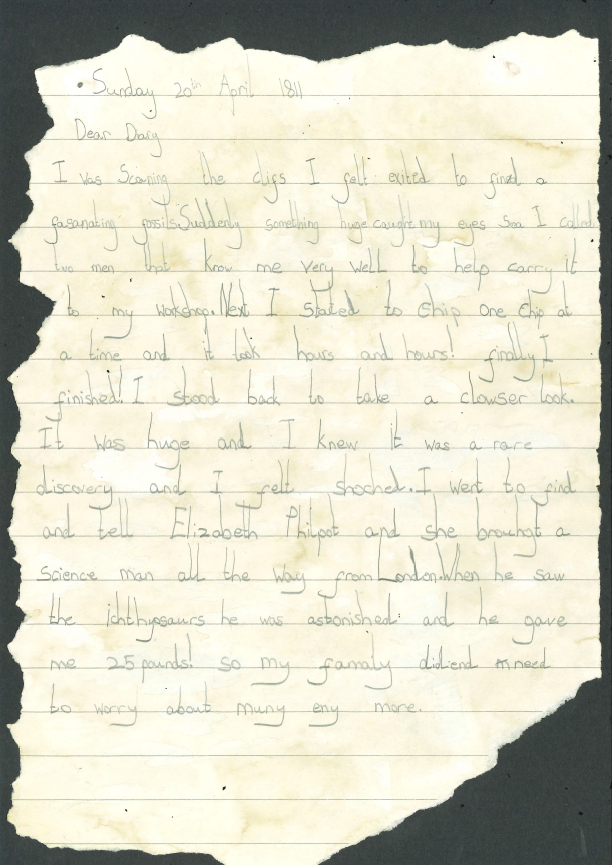 • Sunday 20th April 1811
Dear Diary
I was Scaning the clifs I felt exited to find a
fasanating fossils.Suddenly something huge caught my eyes Soa I called
two men that know me very well to help carry it
to my workshop.Next I Stated to Chip One Chip at
a time and it took hours and hours! finally I
finished! I stood back to take a clowser look.
It was huge and I knew it was a rare
discovery and I felt shoched.I went to find
and tell Elizabeth Philpot and she brounght a
Science man all the Way from London.When he saw
the ichthyosaurs he was astonished and he gave
me 25 pounds! So my famaly did.end need
to worry about muny eny more.